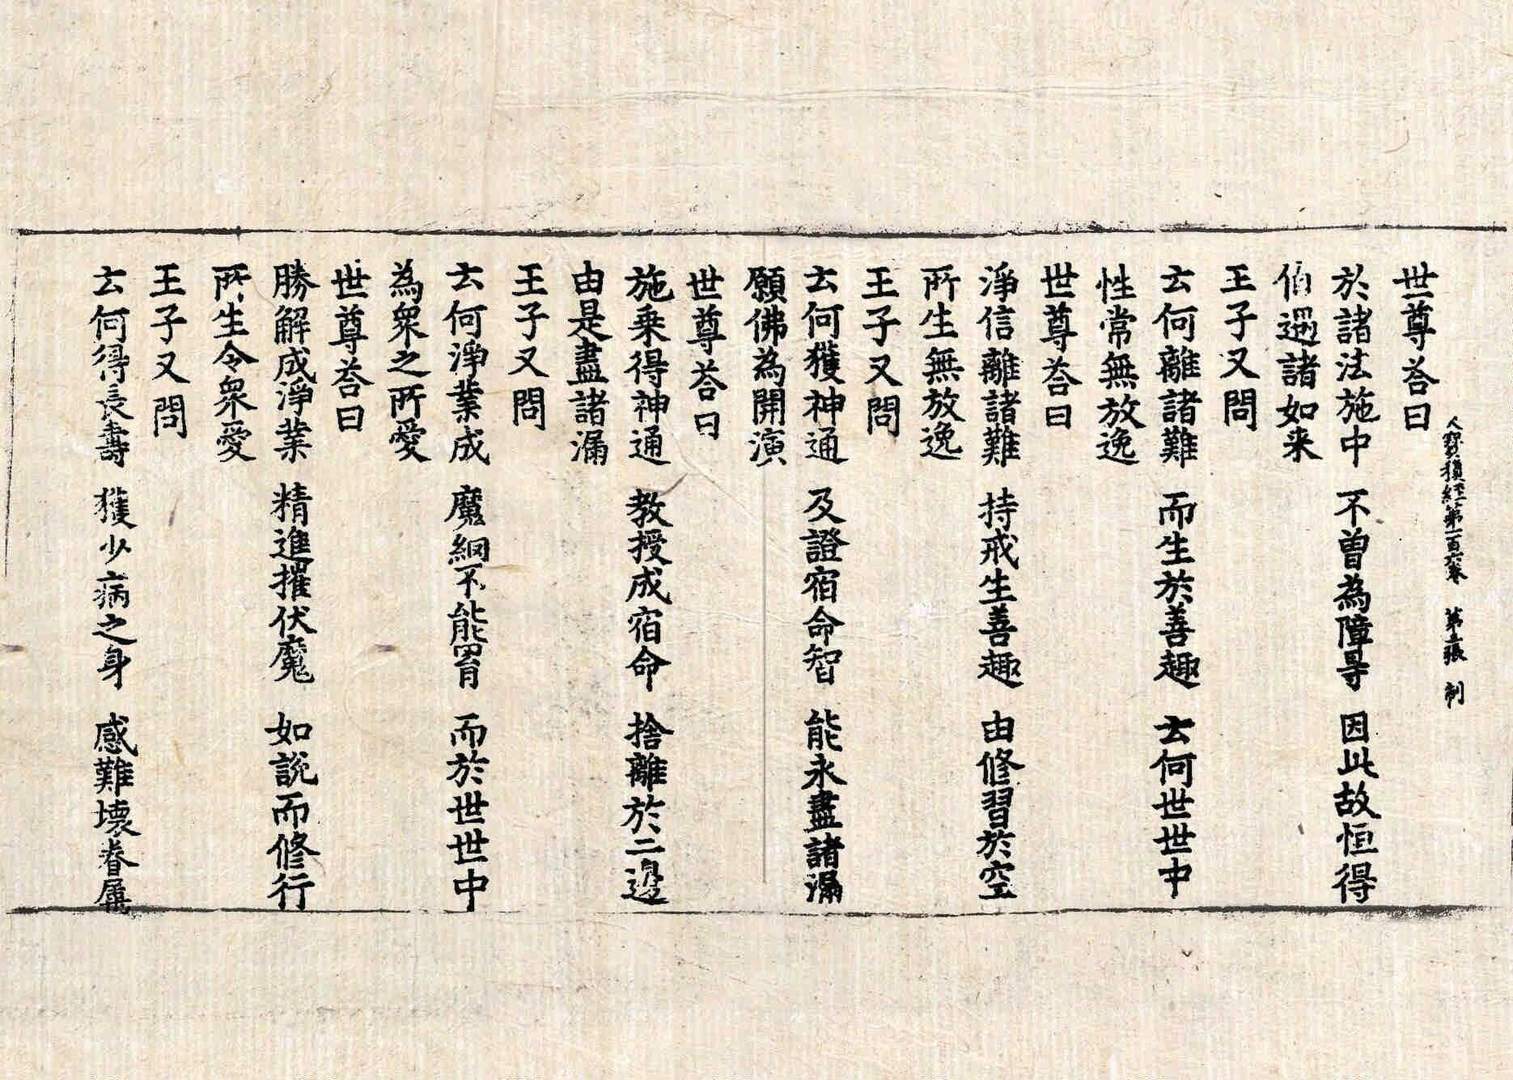 大寳積経第一百六卷 第五張 制
世尊荅曰
於諸法施中 不曽為障㝵 因此故恒得
値遇諸如来
王子又問
云何離諸難 而生於善趣 云何世世中
性常無放逸
世尊荅曰
淨信離諸難 持戒生善趣 由修習於空
所生無放逸
王子又問
云何獲神通 及證宿命智 能永盡諸漏
願佛為開演
世尊荅曰
施乗得神通 教授成宿命 捨離於二邊
由是盡諸漏
王子又問
云何淨業成 魔網不能罥 而於世世中
為衆之所愛
世尊荅曰
勝解成淨業 精進摧伏魔 如說而修行
所生令衆愛
王子又問
云何得長壽 獲少病之身 感難壞眷屬